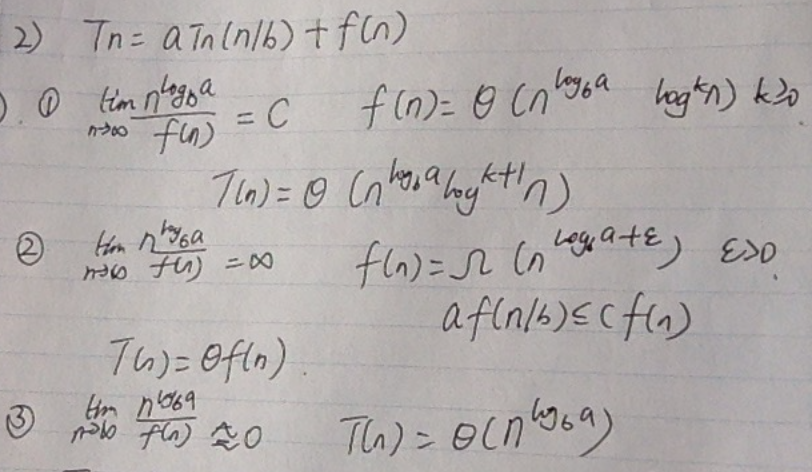 2) Tn = aTn(n/b) + f(n)
① lim n→∞ n^{log_b a} / f(n) = C f(n) = θ (n^{log_b a} log^k n) k≥0.
T(n) = θ (n^{log_b a} log^{k+1} n)
② lim n→∞ n^{log_b a} / f(n) = ∞ f(n) = Ω (n^{log_b a+ε}) ε>0.
af(n/b) ≤ cf(n)
T(n) = θf(n).
③ lim n→∞ n^{log_b a} / f(n) ≈ 0 T(n) = θ(n^{log_b a})